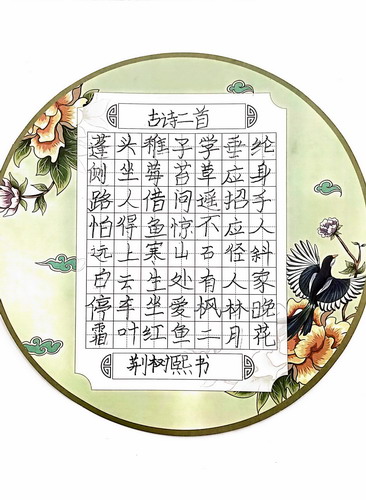 古诗二首
蓬头稚子学垂纶
侧坐莓苔草应身
路人借问遥招手
怕得鱼惊不应人
远上寒山石径斜
白云生处有人家
停车坐爱枫林晚
霜叶红鱼二月花
荆树熙书